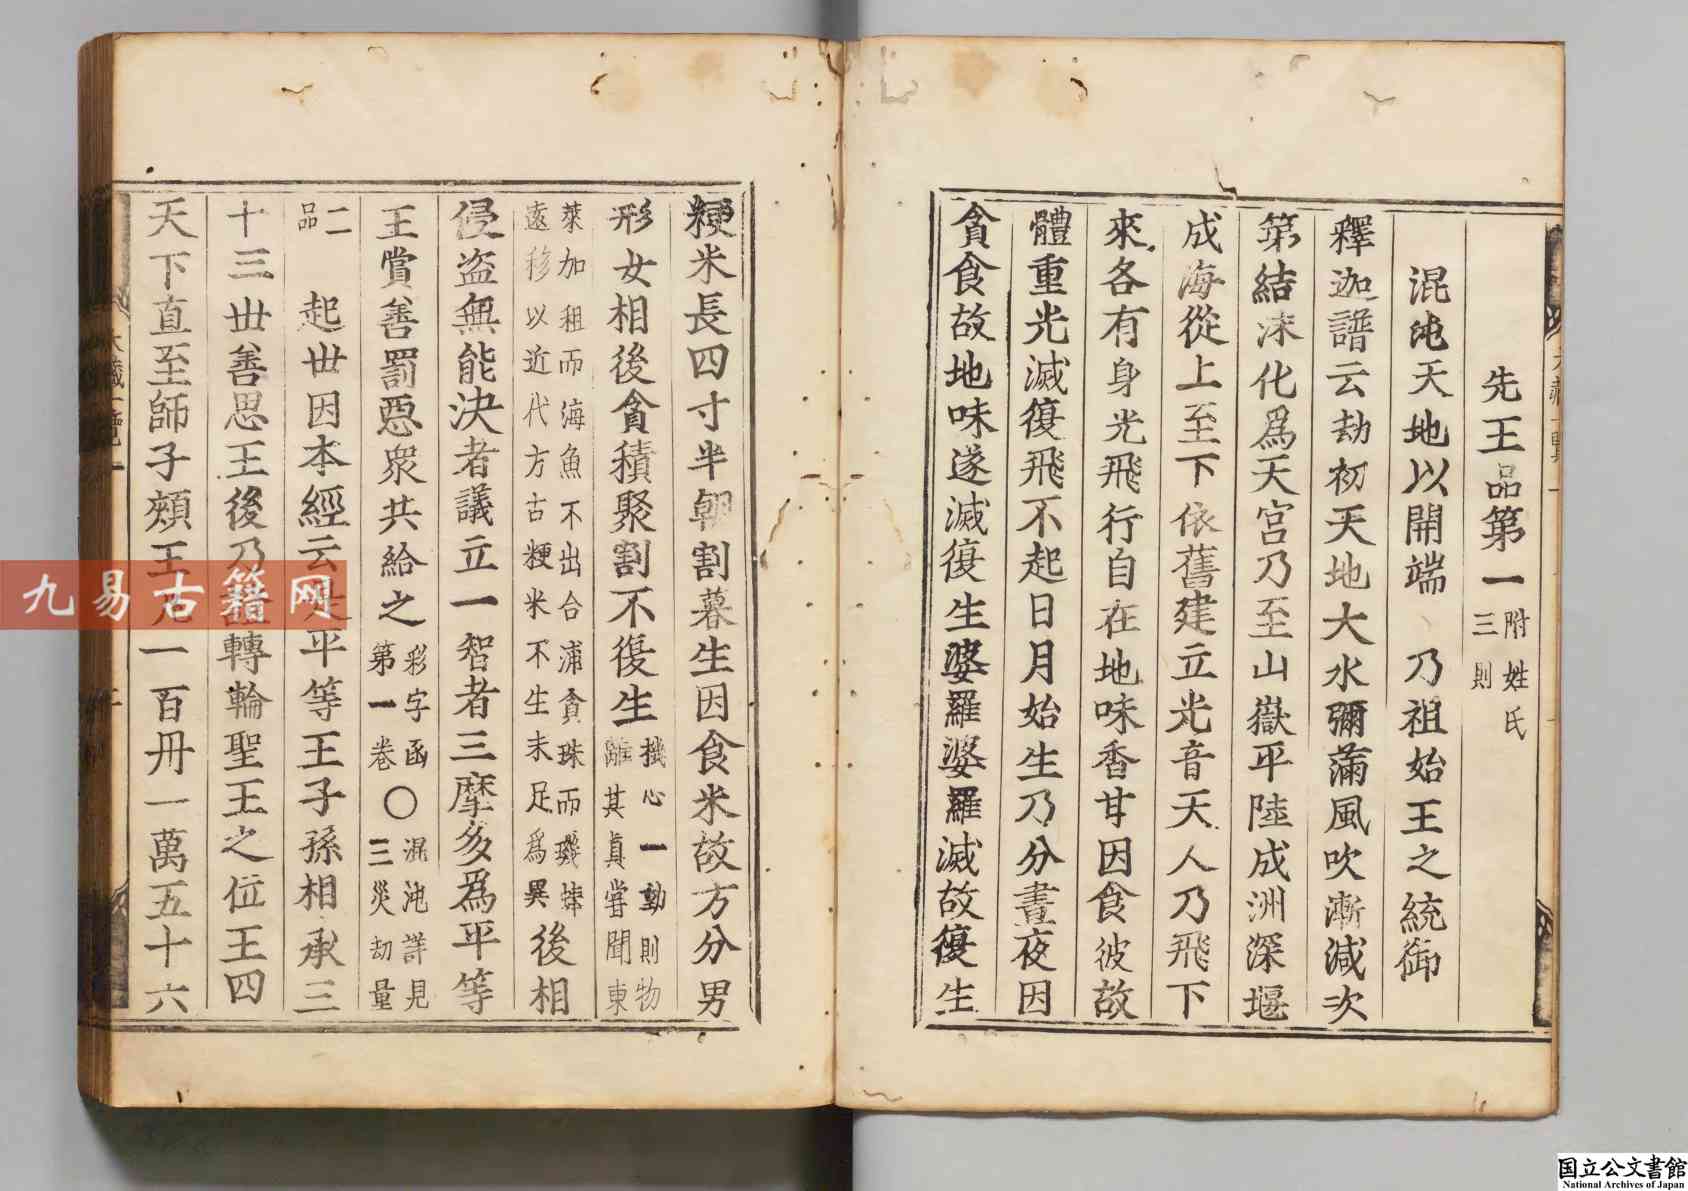 先王品第一附姓氏三則
混沌天地以開端　乃祖始王之統御
釋迦譜云劫初天地大水彌滿風吹漸減次
第結沫化爲天宮乃至山嶽平陸成洲深堰
成海從上至下依舊建立光音天人乃飛下
來各有身光飛行自在地味香甘因食彼故
體重光滅復飛不起日月始生乃分晝夜因
貪食故地味遂滅復生婆羅婆羅滅故復生
粳米長四寸半朝割暮生因食米故方分男
形女相後貪積聚割不復生機心一動則物離其真嘗聞東
萊加租而海魚不出合浦貪珠而璣蜯遠移以近代方古粳米不生未足爲異後相
侵盜無能決者議立一智者三摩多爲平等
王賞善罰惡衆共給之彩字函第一卷〇混沌詳見三災劫量
二品　起世因本經云是平等王子孫相承三
十三世善思王後乃轉輪聖王之位王四
天下直至師子頰王凡一百冊一萬五十六
大藏一覽一
九易古籍网
国立公文書館
National Archives of Japan